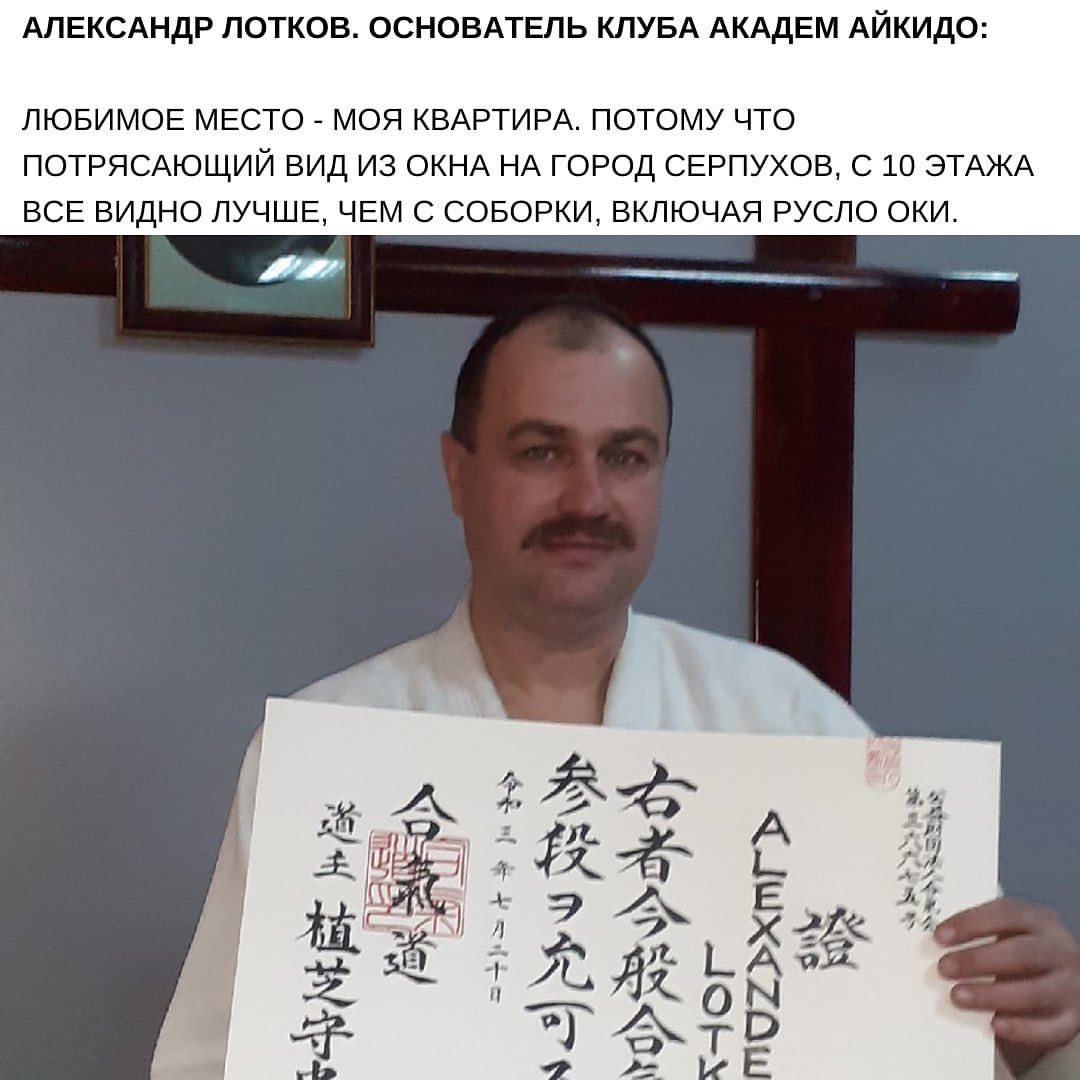 АЛЕКСАНДР ЛОТКОВ. ОСНОВАТЕЛЬ КЛУБА АКАДЕМ АЙКИДО:
ЛЮБИМОЕ МЕСТО - МОЯ КВАРТИРА. ПОТОМУ ЧТО
ПОТРЯСАЮЩИЙ ВИД ИЗ ОКНА НА ГОРОД СЕРПУХОВ, С 10 ЭТАЖА
ВСЕ ВИДНО ЛУЧШЕ, ЧЕМ С СОБОРКИ, ВКЛЮЧАЯ РУСЛО ОКИ.
第三六六九七五号
證
ALEXANDE
LOTK
右者今般合気
参段ヲ允可
令和三年七月二十日
合氣道
道主 植芝守